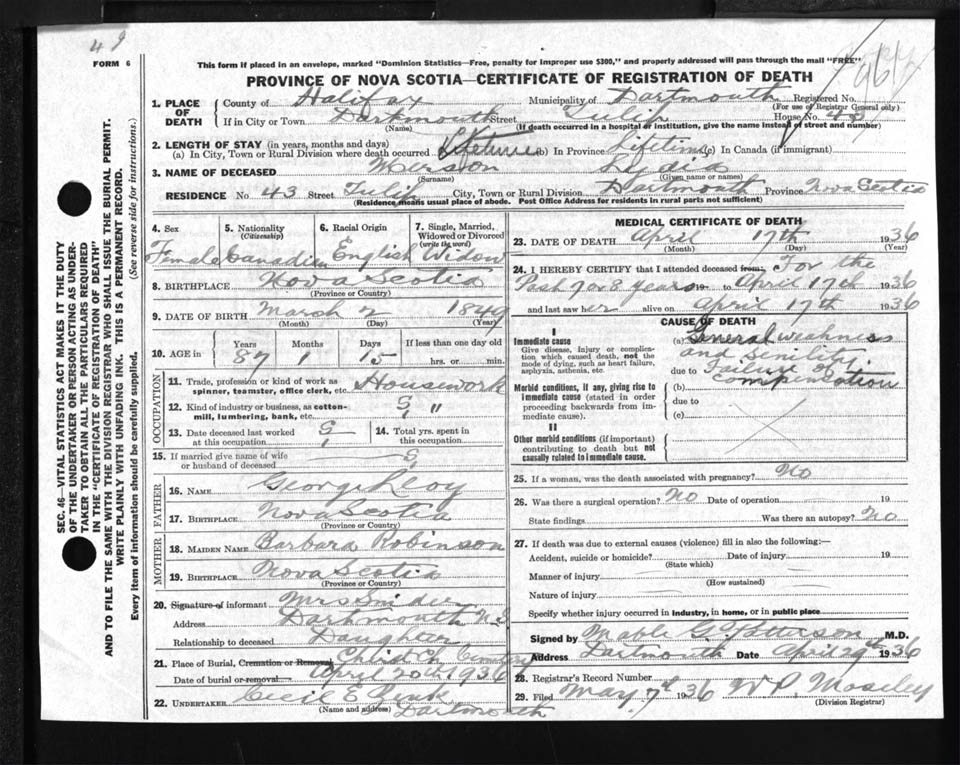 49
FORM 6
This form if placed in an envelope, marked "Dominion Statistics—Free, penalty for improper use $300," and properly addressed will pass through the mail "FREE"
PROVINCE OF NOVA SCOTIA—CERTIFICATE OF REGISTRATION OF DEATH
SEC. 46—VITAL STATISTICS ACT MAKES IT THE DUTY
OF THE UNDERTAKER OR PERSON ACTING AS UNDER-
TAKER "TO OBTAIN ALL THE PARTICULARS REQUIRED
IN THE "CERTIFICATE OF REGISTRATION OF DEATH"
AND TO FILE THE SAME WITH THE DIVISION REGISTRAR WHO SHALL ISSUE THE BURIAL PERMIT.
WRITE PLAINLY WITH UNFADING INK. THIS IS A PERMANENT RECORD.
Every item of information should be carefully supplied. (See reverse side for instructions.)
1. PLACE OF DEATH
County of Halifax Municipality of Dartmouth Registered No.
(For use of Registrar General only)
If in City or Town Dartmouth Street Tulip House No. 43
(Name) (If death occurred in a hospital or institution, give the name instead of street and number)
2. LENGTH OF STAY (in years, months and days)
(a) In City, Town or Rural Division where death occurred Lifetime (b) In Province Lifetime (c) In Canada (if immigrant)
3. NAME OF DECEASED Lydia
(Surname) (Given name or names)
RESIDENCE No 43 Street Tulip City, Town or Rural Division Dartmouth Province Nova Scotia
(Residence means usual place of abode. Post Office Address for residents in rural parts not sufficient)
4. Sex 5. Nationality (Citizenship) 6. Racial Origin 7. Single, Married, Widowed or Divorced (write the word)
Female Canadian English Widow
8. BIRTHPLACE Nova Scotia
(Province or Country)
9. DATE OF BIRTH March 2 1849
(Month) (Day) (Year)
10. AGE in Years Months Days If less than one day old
87 1 15 hrs. or min.
OCCUPATION
11. Trade, profession or kind of work as spinner, teamster, office clerk, etc. Housework
12. Kind of industry or business, as cotton-mill, lumbering, bank, etc. "
13. Date deceased last worked at this occupation
14. Total yrs. spent in this occupation
15. If married give name of wife or husband of deceased
FATHER
16. NAME George
17. BIRTHPLACE Nova Scotia
(Province or Country)
MOTHER
18. MAIDEN NAME Barbara Robinson
19. BIRTHPLACE Nova Scotia
(Province or Country)
20. Signature of informant Mrs
Address Dartmouth N.S
Relationship to deceased Daughter
21. Place of Burial, Cremation or Removal Christ Ch Cemetery
Date of burial or removal April 20th 1936
22. UNDERTAKER Cecil E Zink
(Name and address) Dartmouth
MEDICAL CERTIFICATE OF DEATH
23. DATE OF DEATH April 17th 1936
(Month) (Day) (Year)
24. I HEREBY CERTIFY that I attended deceased from For the
Past 7 or 8 years 19 to April 17th 1936
and last saw her alive on April 17th 1936
CAUSE OF DEATH
I
Immediate cause
Give disease, injury or complication which caused death, not the mode of dying, such as heart failure, asphyxia, asthenia, etc.
(a) General weakness
and senility.
due to Failure of
(b) compensation
Morbid conditions, if any, giving rise to immediate cause (stated in order proceeding backwards from immediate cause).
due to
(c)
II
Other morbid conditions (if important) contributing to death but not causally related to immediate cause.
25. If a woman, was the death associated with pregnancy? No
26. Was there a surgical operation? No Date of operation 19
State findings Was there an autopsy? No
27. If death was due to external causes (violence) fill in also the following:—
Accident, suicide or homicide? Date of injury 19
(State which)
Manner of injury
(How sustained)
Nature of injury
Specify whether injury occurred in industry, in home, or in public place
Signed by Mable G. Patterson M.D.
Address Dartmouth Date April 29th 1936
28. Registrar's Record Number
29. Filed May 7th 1936 Moseley
(Division Registrar)